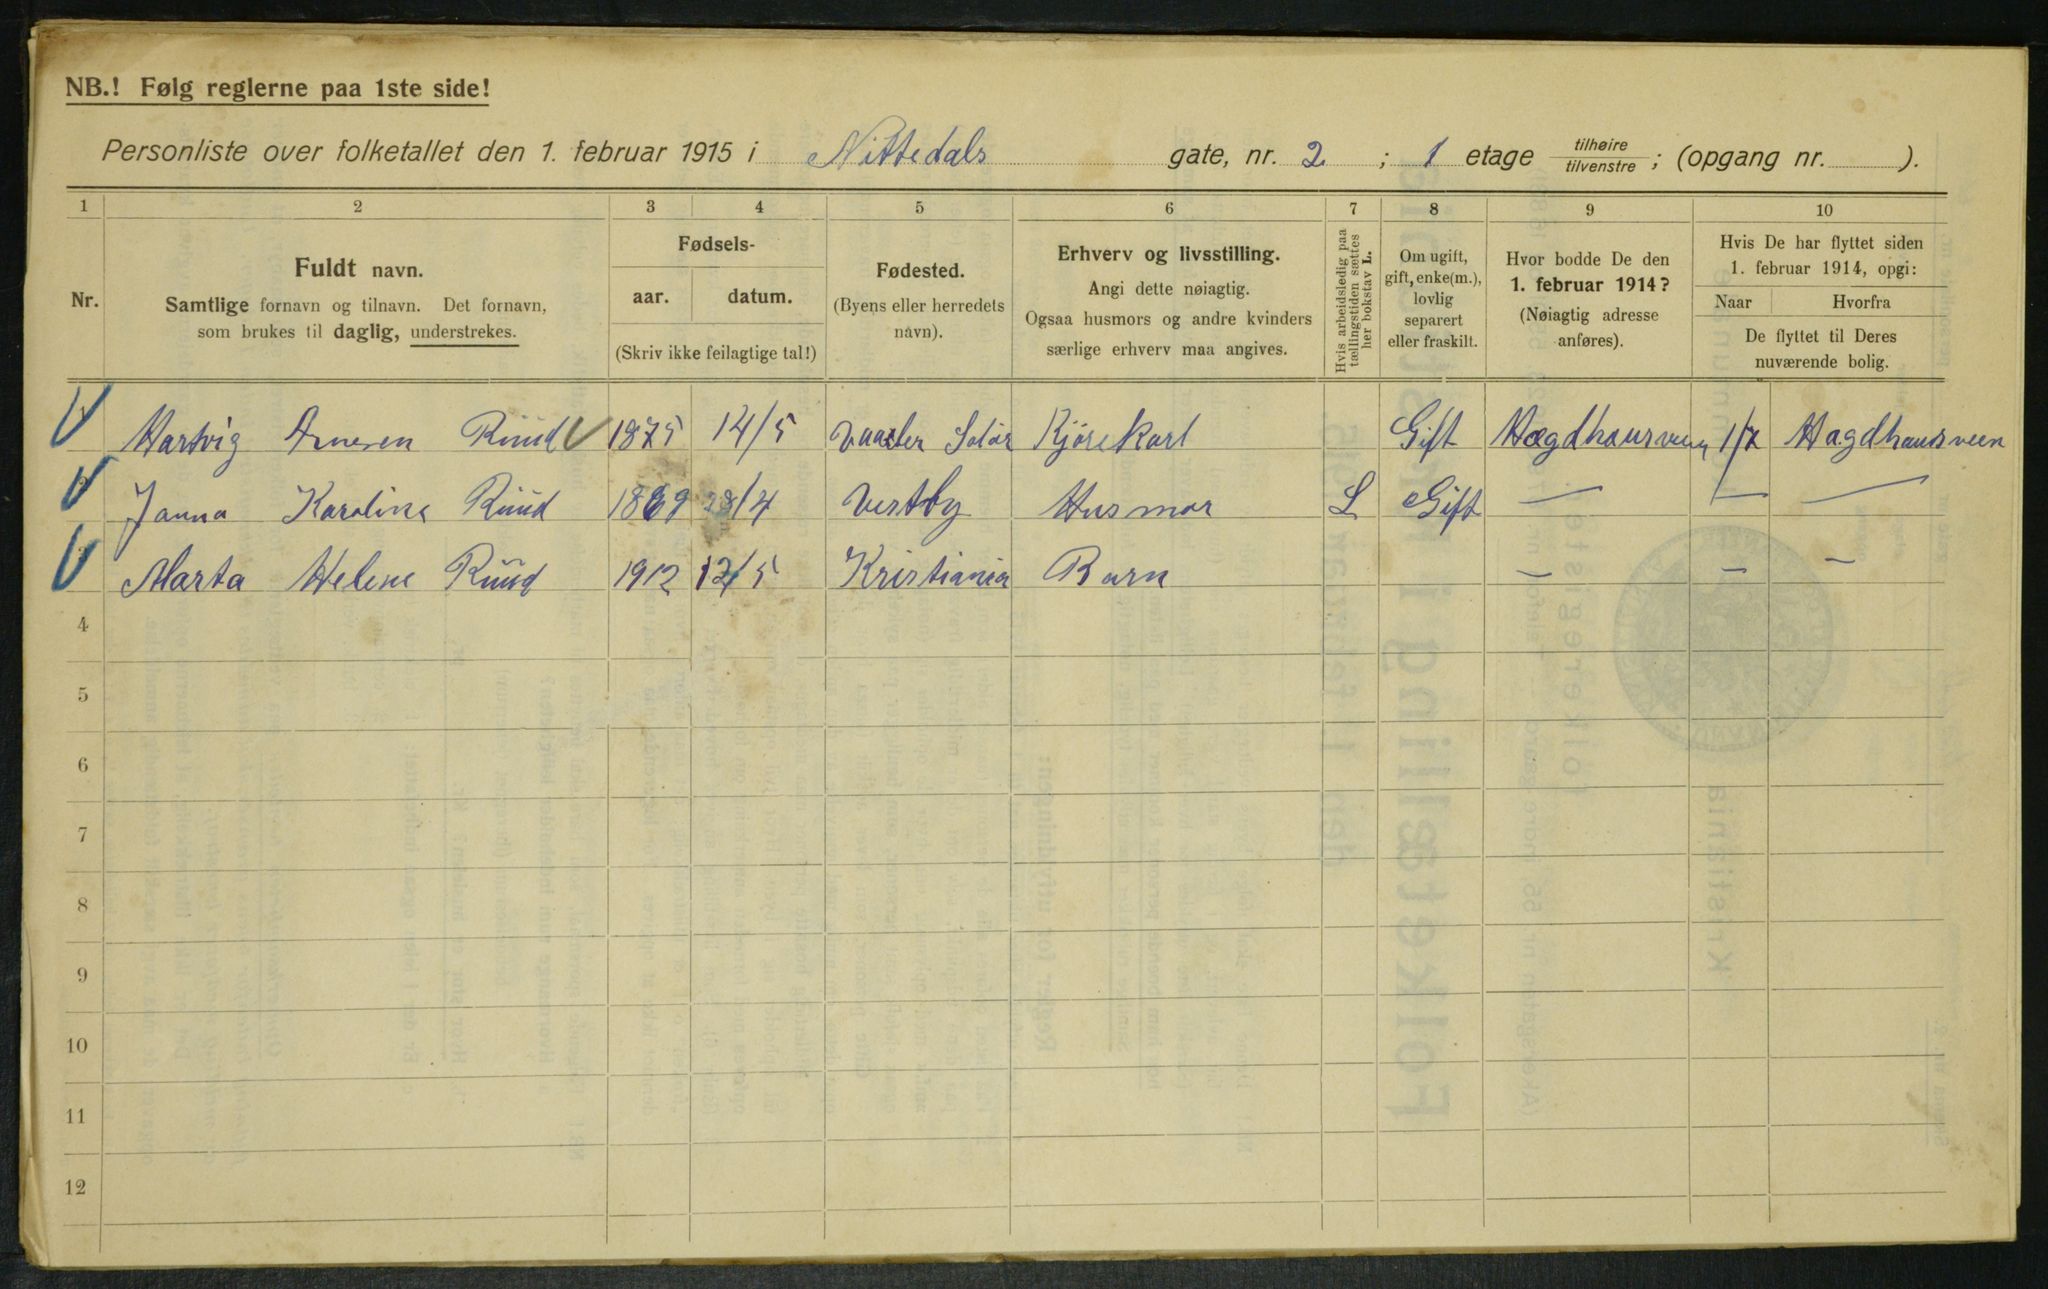 NB.! Følg reglerne paa 1ste side!
Personliste over folketallet den 1. februar 1915 i Nittedals gate, nr. 2 ; 1 etage tilhøire tilvenstre ; (opgang nr. ).
1 2 3 4 5 6 7 8 9 10
Nr.
Fuldt navn.
Samtlige fornavn og tilnavn. Det fornavn,
som brukes til daglig, understrekes.
Fødsels-
aar. datum.
(Skriv ikke feilagtige tal!)
Fødested.
(Byens eller herredets
navn).
Erhverv og livsstilling.
Angi dette nøiagtig.
Ogsaa husmors og andre kvinders
særlige erhverv maa angives.
Hvis arbeidsledig paa
tællingstiden sættes
her bokstav L.
Om ugift,
gift, enke(m.),
lovlig
separert
eller fraskilt.
Hvor bodde De den
1. februar 1914?
(Nøiagtig adresse
anføres).
Hvis De har flyttet siden
1. februar 1914, opgi:
Naar Hvorfra
De flyttet til Deres
nuværende bolig.
Hartvig Arnesen Ruud 1875 14/5 Vaaler Solør Kjørekarl Gift Hægdhausveien 1/7 Hægdhausveen
Janna Karoline Ruud 1869 /4 Vestby Husmor L Gift — — —
Marta Helene Ruud 1912 12/5 Kristiania Barn — — —
4
5
6
7
8
9
10
11
12